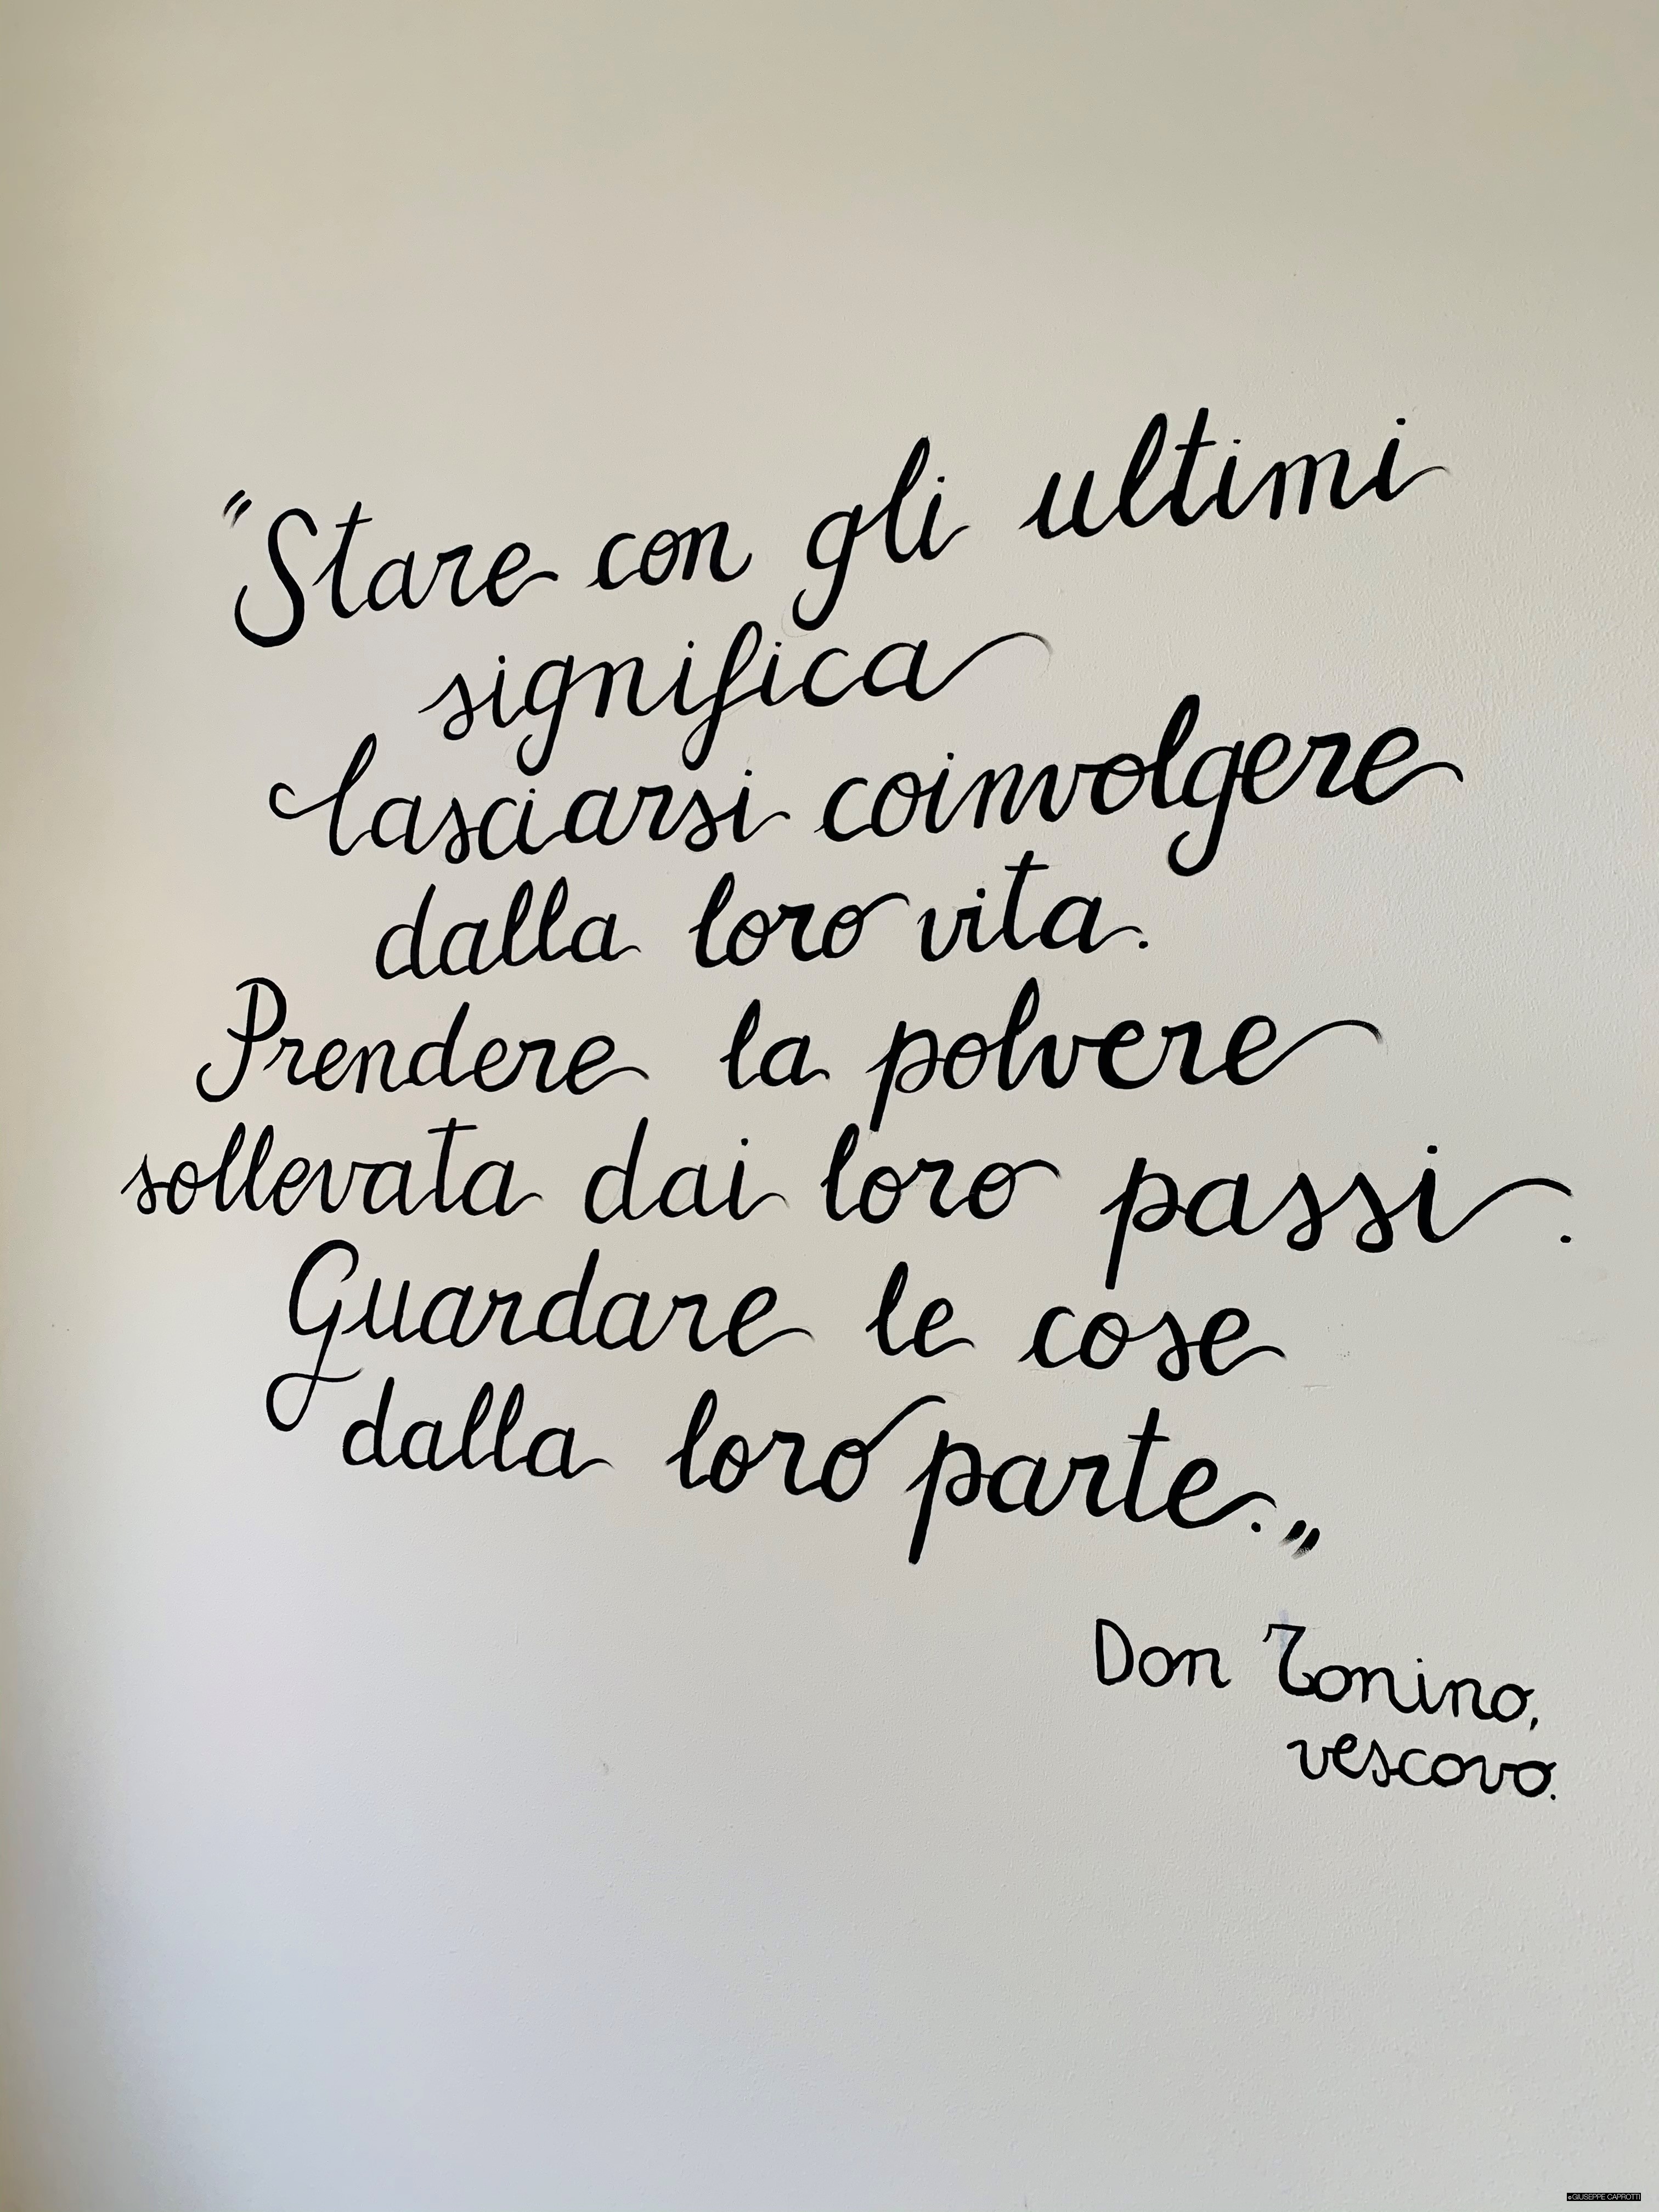 "Stare con gli ultimi
significa
lasciarsi coinvolgere
dalla loro vita.
Prendere la polvere
sollevata dai loro passi.
Guardare le cose
dalla loro parte.„
Don Tonino,
vescovo.
©GIUSEPPE CAPROTTI